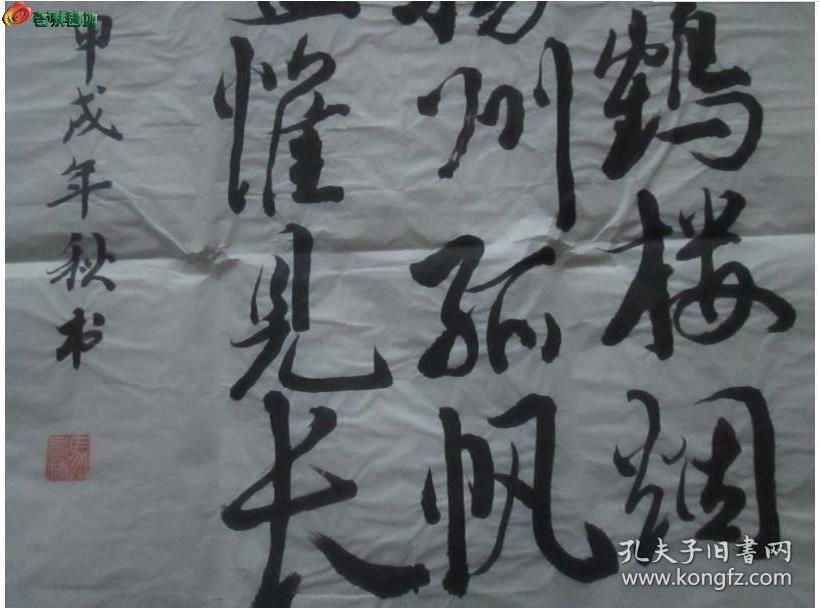 鹤楼烟
扬州孤帆
惟见长
甲戌年秋书
孔夫子旧書网
www.kongfz.com